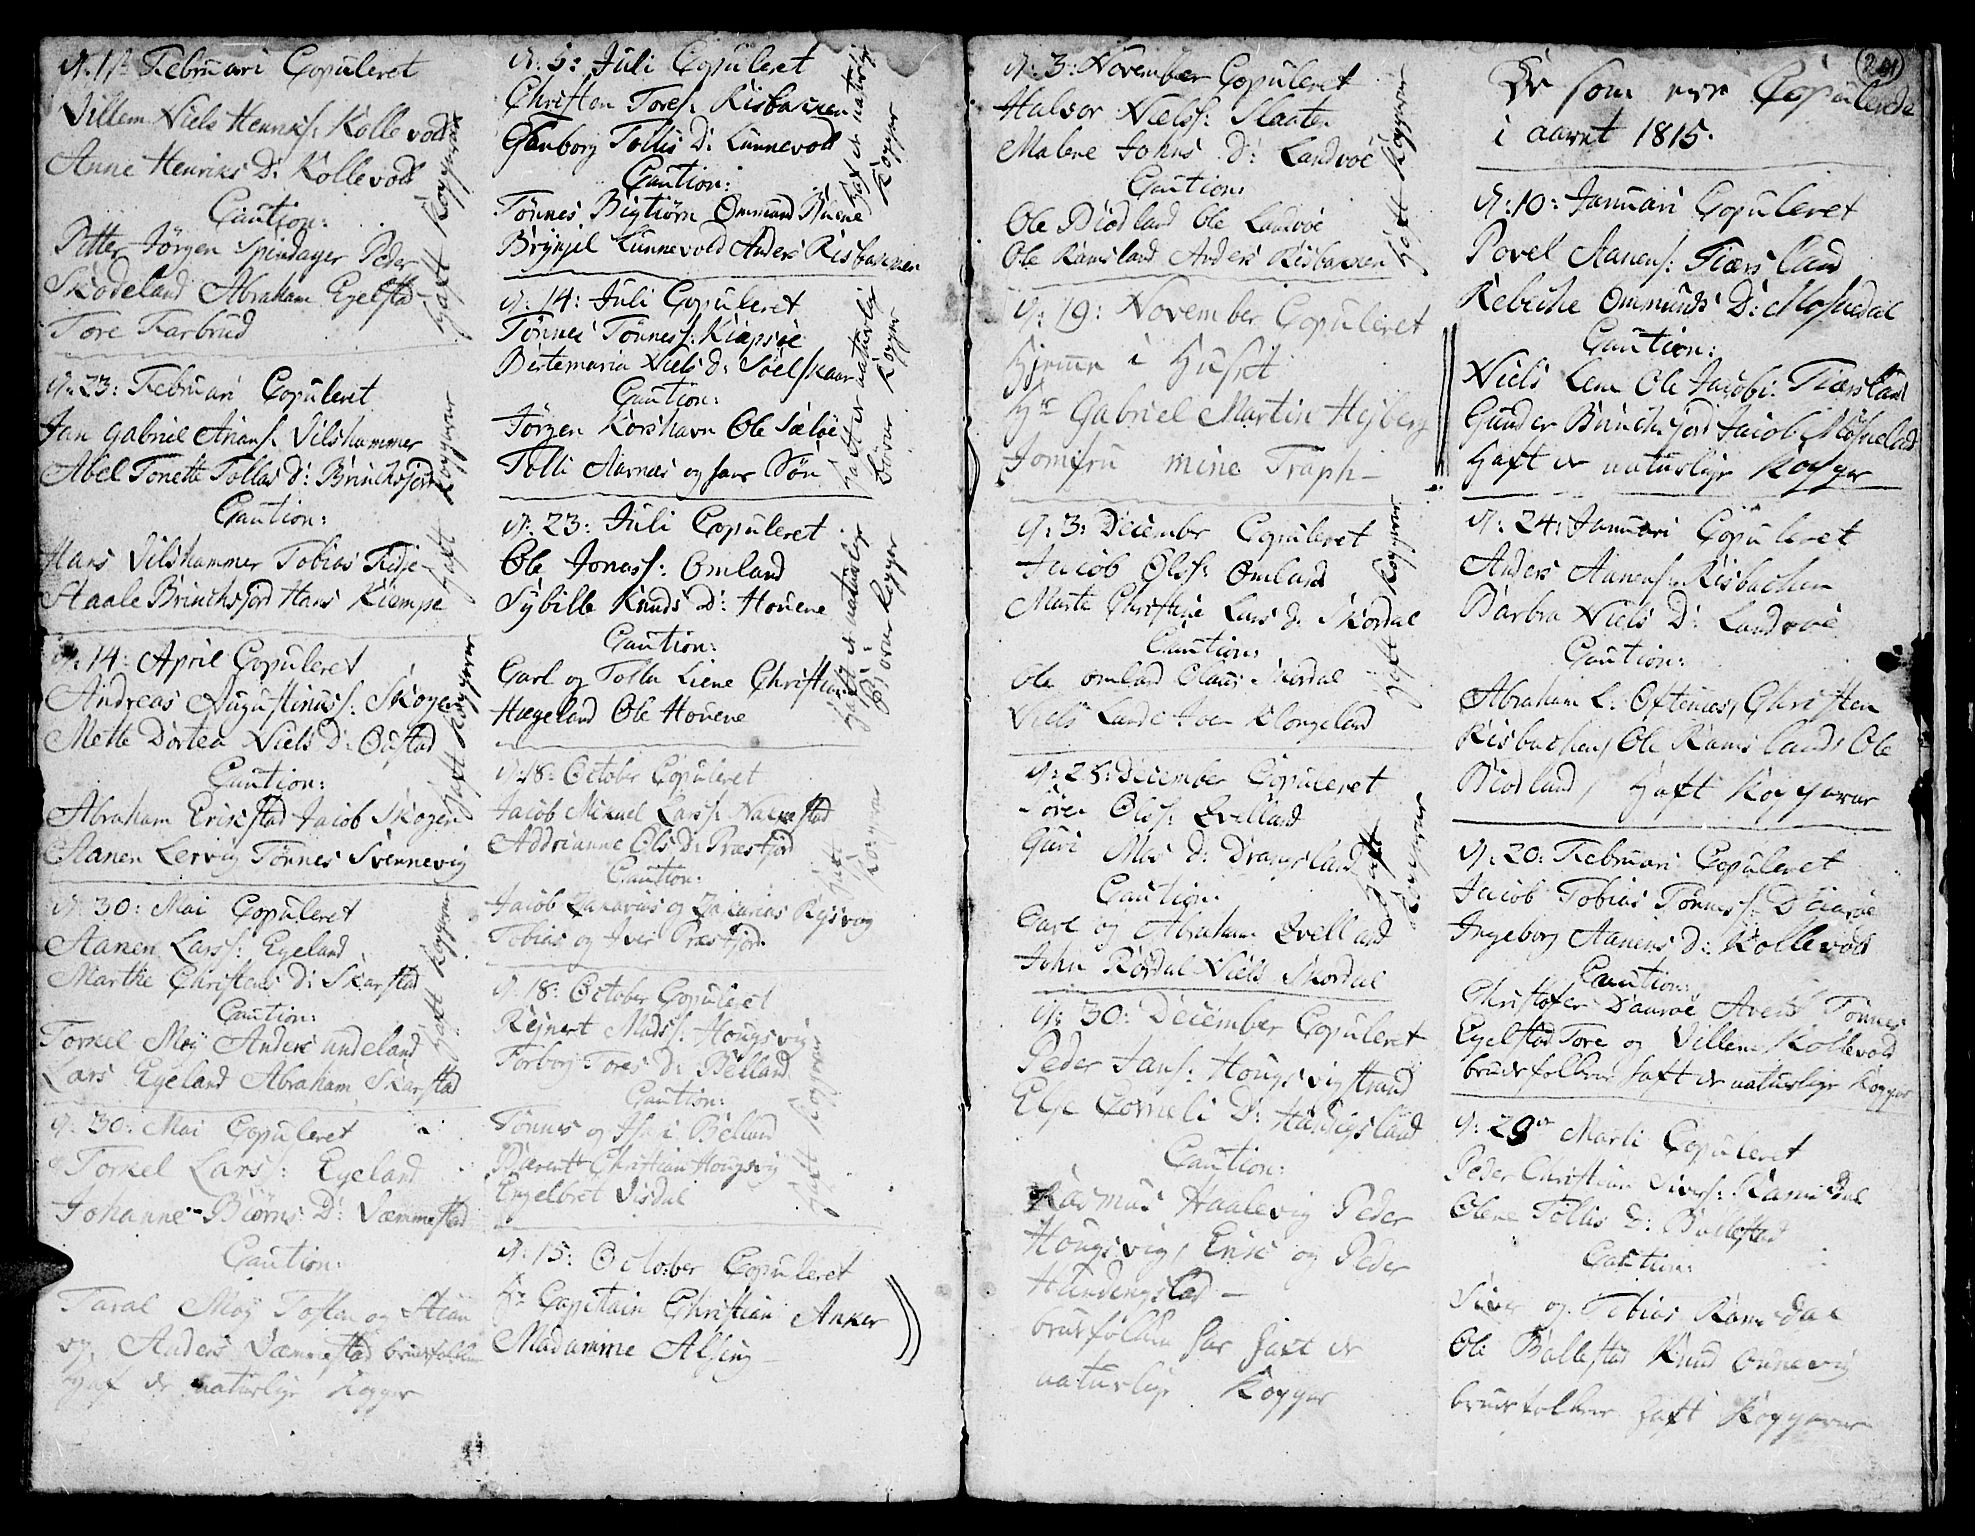 d. 17de Februari Copuleret
Villem Niels Henriks: Kollevold
Anne Henriks D: Kollevold
Caution:
Petter Jörgen Spindager Peder
Skodeland Abraham Egelstad
Tore Farbrud
haft Kopperne
d: 23: Februari Copuleret
Jan Gabriel Arians: Vilshammer
Abel Tonette Tollas D: Brinchsfjord
Caution:
Hans Vilshammer Tobias Fedje
Staale Brinchsfjord Hans Kiempe
haft Kopperne
d: 14: April Copuleret
Andreas Augustinus: Skogen
Mette Dortea Niels D: Öustad
Caution:
Abraham Erikstad Jacob Skogen
Aanen Lervig Tönnes Svennevig
haft Kopperne
d: 30: Mai Copuleret
Aanen Lars: Egeland
Marthe Christens D: Skarstad
Caution:
Torkel Moy Anders Undeland
Lars Egeland Abraham Skarstad
haft Kopperne
d: 30: Mai Copuleret
Torkel Lars: Egeland
Johanne Biörns D: Væmmestad
Caution:
Taral Moy Tosten og Stian
og Anders Væmmestad brudefolkene
haft de naturlige Kopper
d: 5: Juli Copuleret
Christen Tores: Risbakken
Gunborg Tollis D: Lunnevold
Caution:
Tönnes Bigtiörn Ommund Buene
Brynjel Lunnevold Anders Risbakken
haft de naturlige Kopper
d: 14: Juli Copuleret
Tönnes Tönnes: Kiæpsöe
Birtemaria Niels D: Söelskaar
Caution:
Jörgen Korshavn Ole Sælöe
Tolli Aarnæs og hans Sön
haft de naturlige Kopper
d: 23: Juli Copuleret
Ole Jonas: Omland
Sybille Knuds D: Houene
Caution:
Carl og Tollu Liene Christian
Hægeland Ole Houene
haft de naturlige Kopper
d: 18: October Copuleret
Jacob Mikael Lars: Naglestad
Addrianne Ols D: Præstfjord
Caution:
Jacob Zakarias og Zakarias Rejsvog
Tobias og Iver Præstfjord
haft Kopperne
d: 18: October Copuleret
Rejnert Mads: Hougsvig
Torborg Tores D: Bölland
Caution:
Tönnes og Bölland
Christian Hougsvig
Engelbret Visdal
haft Kopperne
d: 15: October Copuleret
Hr Capitain Christian Anker
Madamme Alsing
d: 3: November Copuleret
Halvor Niels: Slaaten
Malene Johns D: Landvöe
Caution:
Ole Biodland Ole Landvöe
Ole Ramsland Anders Risbakken
haft Kopperne
d: 19: November Copuleret
hjemme i Huset
Hr Gabriel Martin Hejberg
Jomfru mine Traph
d: 3: December Copuleret
Jacob Ols: Omland
Marte Christine Lars D: Skordal
Caution:
Ole Omland Claus Skordal
Niels Lande Iven Klongeland
haft Kopperne
d: 28: December Copuleret
Sören Ols: Qvelland
Guri Mos D: Drangsland
Caution:
Carl og Abraham Qvelland
John Rördal Niels Skordal
haft Kopperne
d: 30: December Copuleret
Peder Jans: Hougsvigstrand
Else Corneli D: Handigsland
Caution:
Rasmus Haalevig Peder
Hougsvig, Erik og Peder
brudefolkene har haft de
naturlige Kopper
201
De som ere Copulerede
i aaret 1815.
d: 10: Januari Copuleret
Povel Aanens: Fiærsland
Rebekke Ommunds D: Mosfredal
Caution:
Niels Lene Ole Jacobs: Fiærsland
Gunder Brinchsfjord Jacob
haft de naturlige Kopper
d: 24: Januari Copuleret
Anders Aanens: Risbachen
Barbra Niels D: Landvöe
Caution:
Abraham L: Oftenæs, Christen
Risbachen, Ole Ramsland Ole
Biodland, haft Kopperne
d: 20: Februari Copuleret
Jacob Tobias Tönnes: Dauröe
Ingeborg Aanens D: Kollevold
Caution:
Christofer Dauröe Arent Tönnes
Egelstad Tore og Villem Kollevold
brudefolkene haft de naturlige Kopper
d: 29de Marti Copuleret
Peder Christian Sivers: Ramsdal
Olene Tollis D: Ballestad
Caution:
Siver og Tobias Ramsdal
Ole Ballestad Knud Onnevig
brudefolkene haft Kopperne